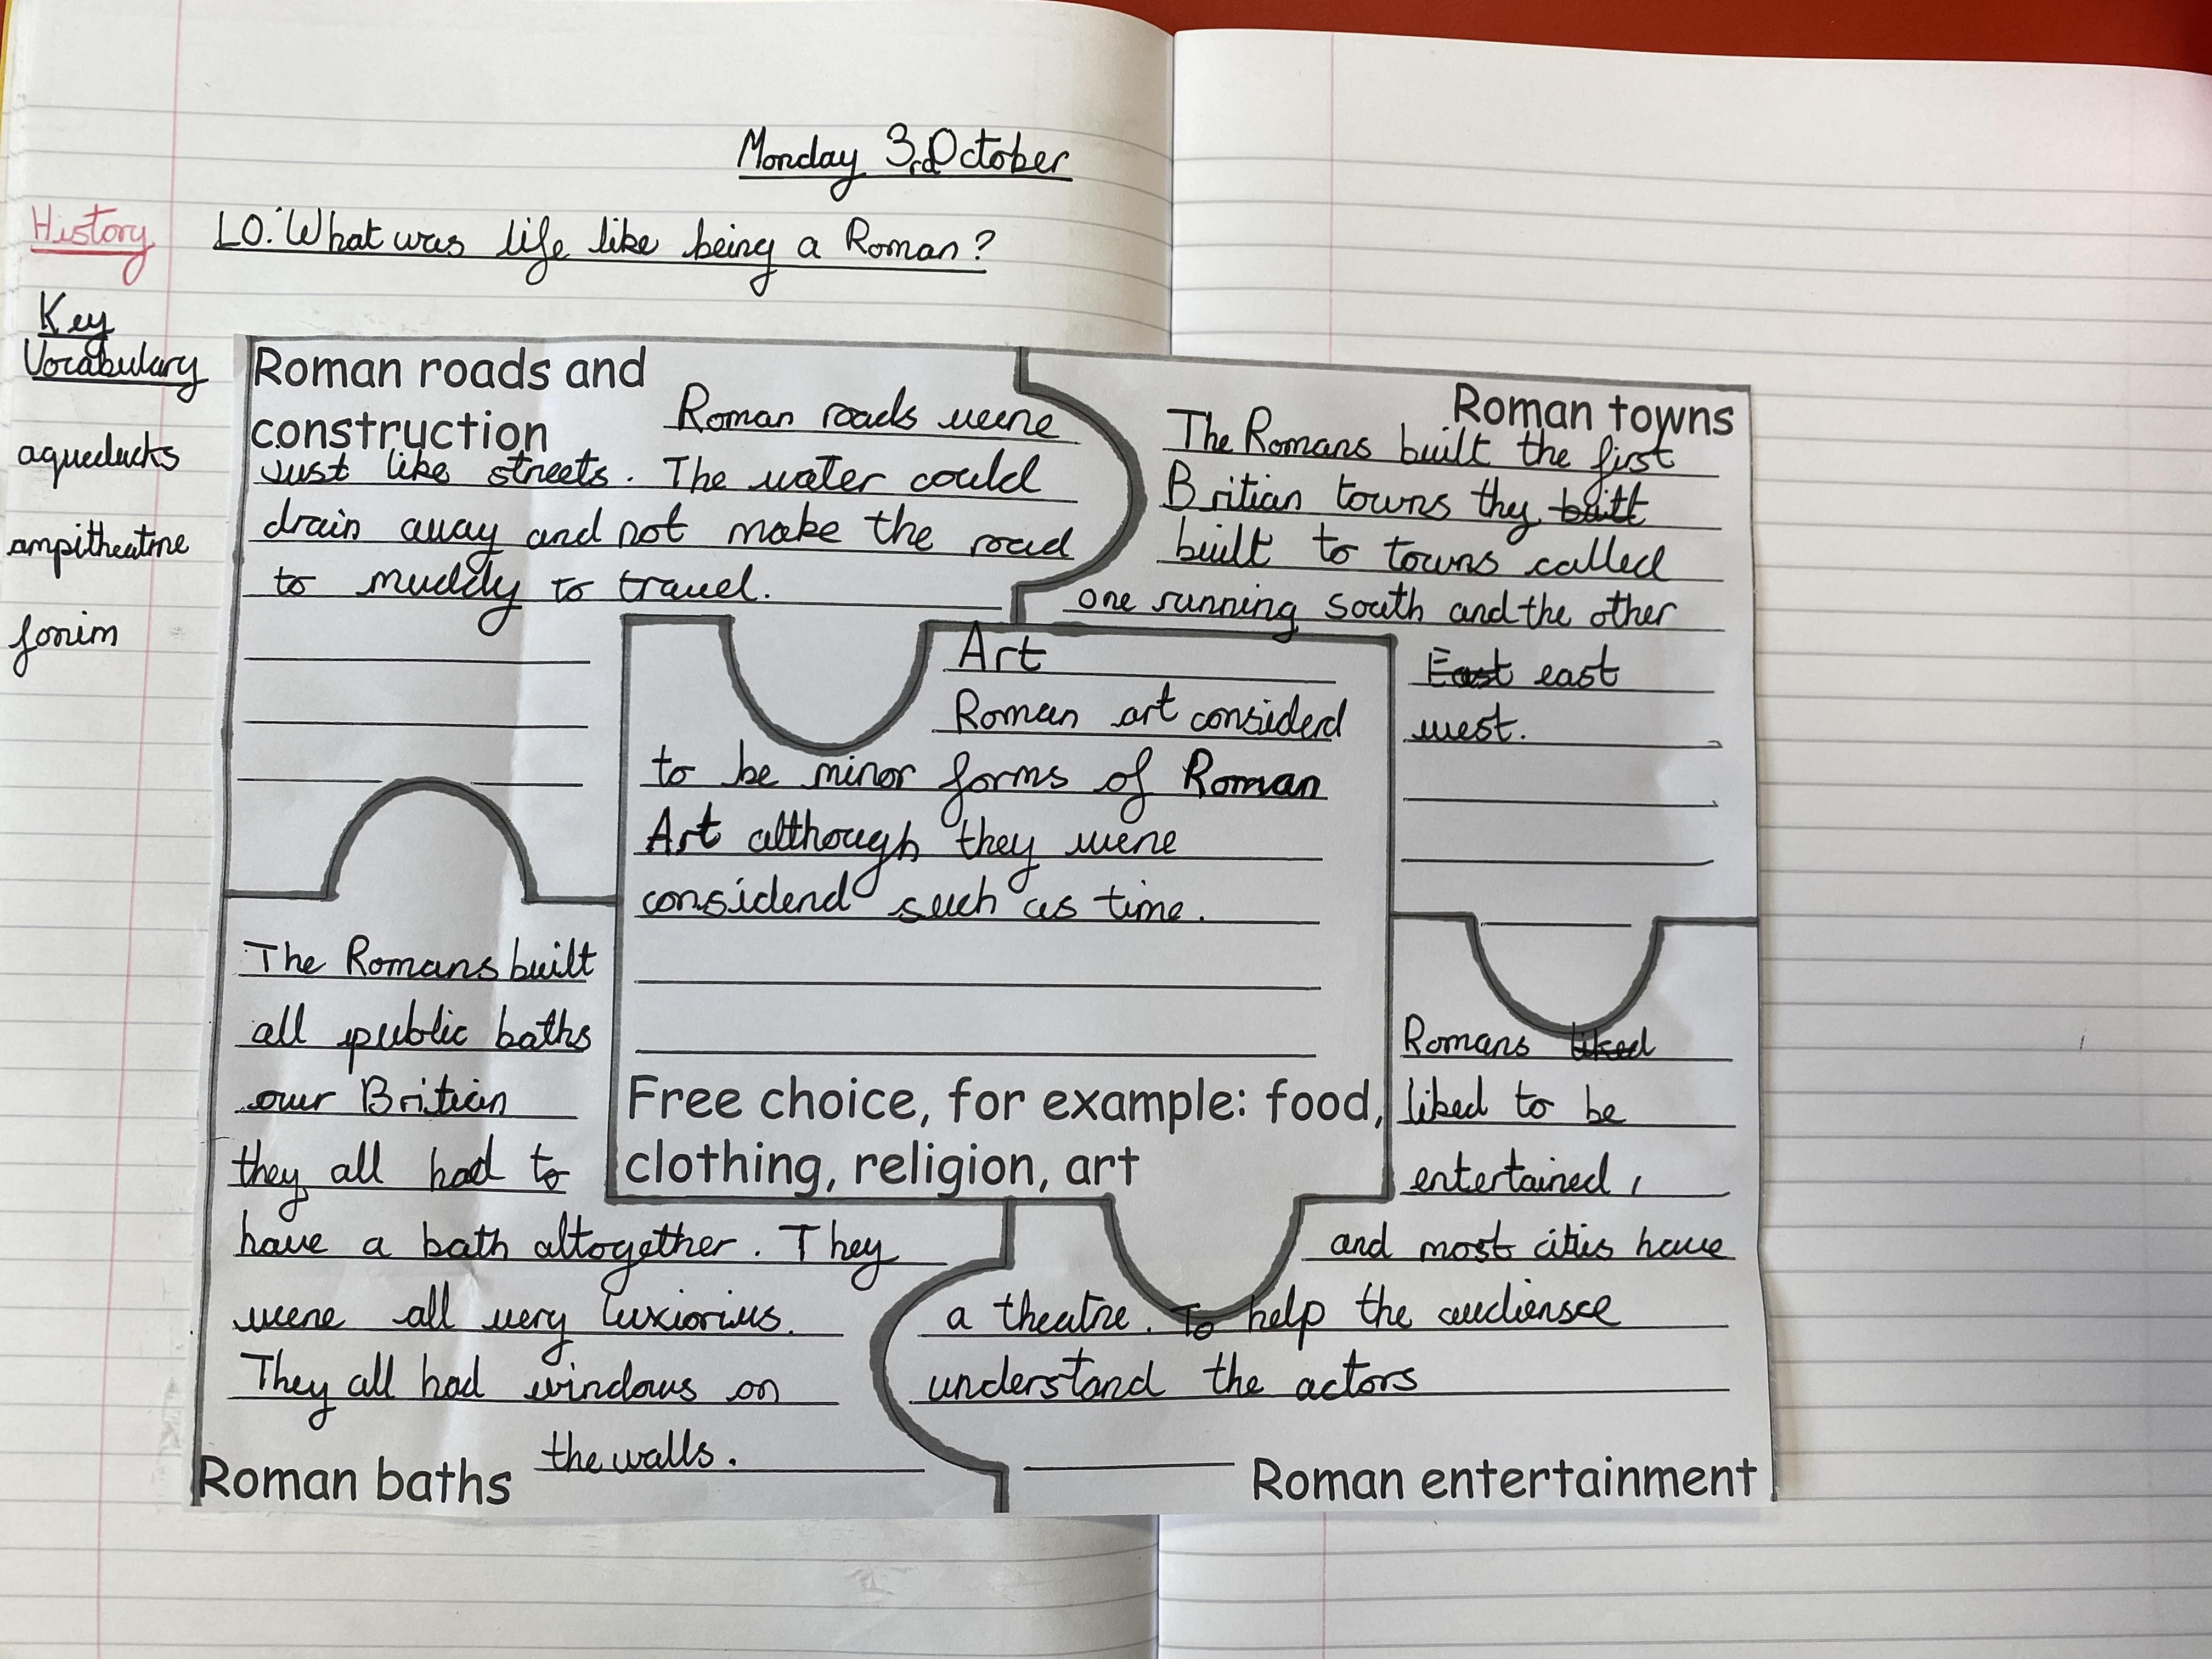 Monday 3rd October
History
LO: What was life like being a Roman?
Key
Vocabulary
aqueducks
ampitheatre
forim
Roman roads and
construction
Roman roads were
Just like streets. The water could
drain away and not make the road
to muddy to travel.
Roman towns
The Romans built the first
Britian towns they built
built to towns called
one running south and the other
East east
west.
Art
Roman art considerd
to be minor forms of Roman
Art although they were
considerd such as time.
Free choice, for example: food,
clothing, religion, art
The Romans built
all public baths
over Britian
they all had to
have a bath altogether. They
were all very luxiorius.
They all had windows on
the walls.
Roman baths
Romans liked
liked to be
entertained,
and most cities have
a theatre. To help the audiensce
understand the actors
Roman entertainment